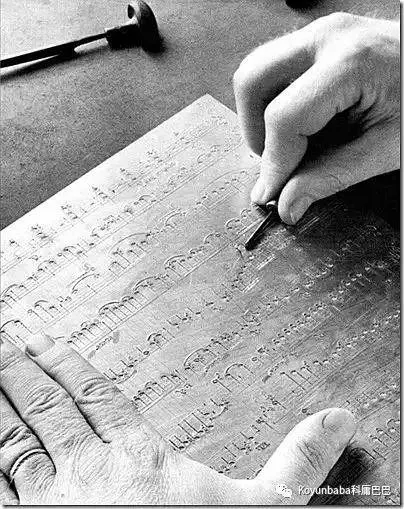 Koyunbaba科庸巴巴